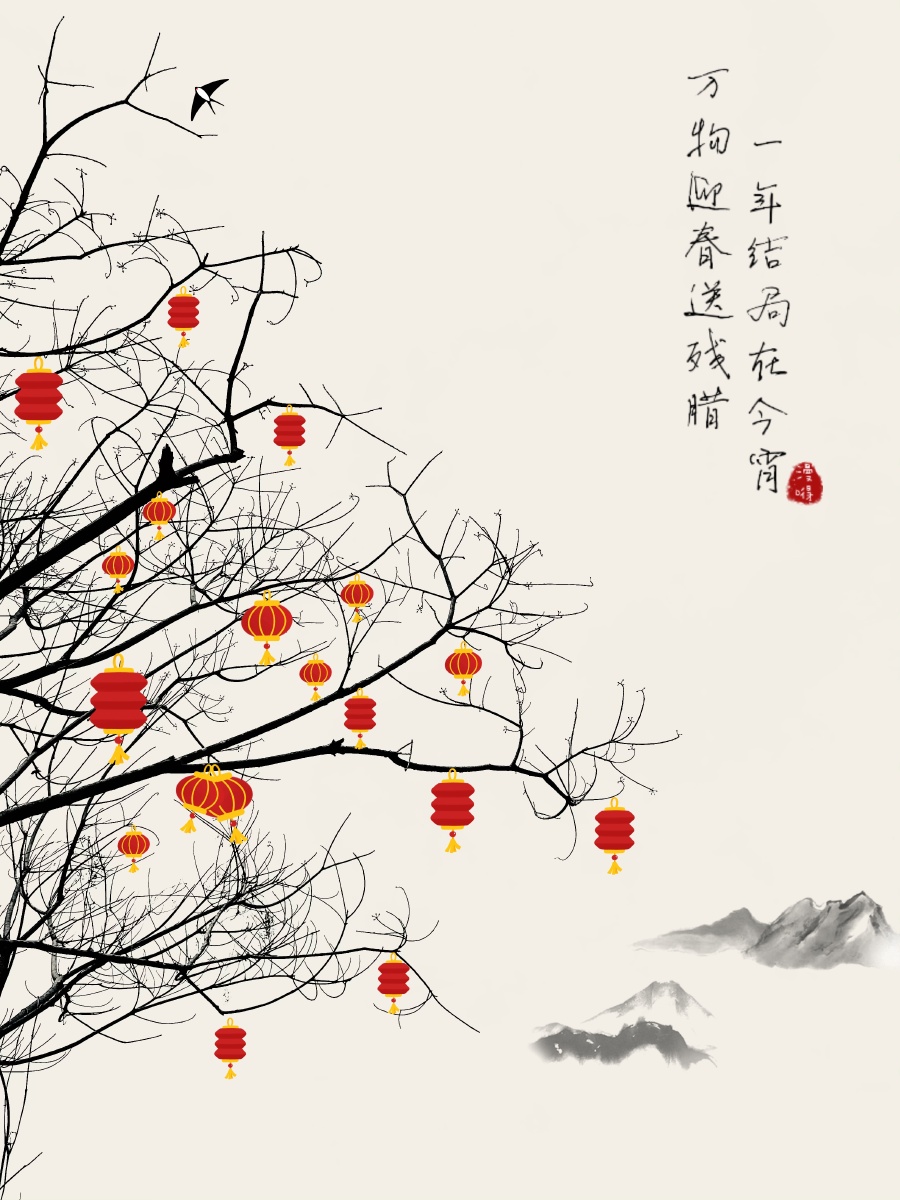 一年结局在今宵
万物迎春送残腊
漫得